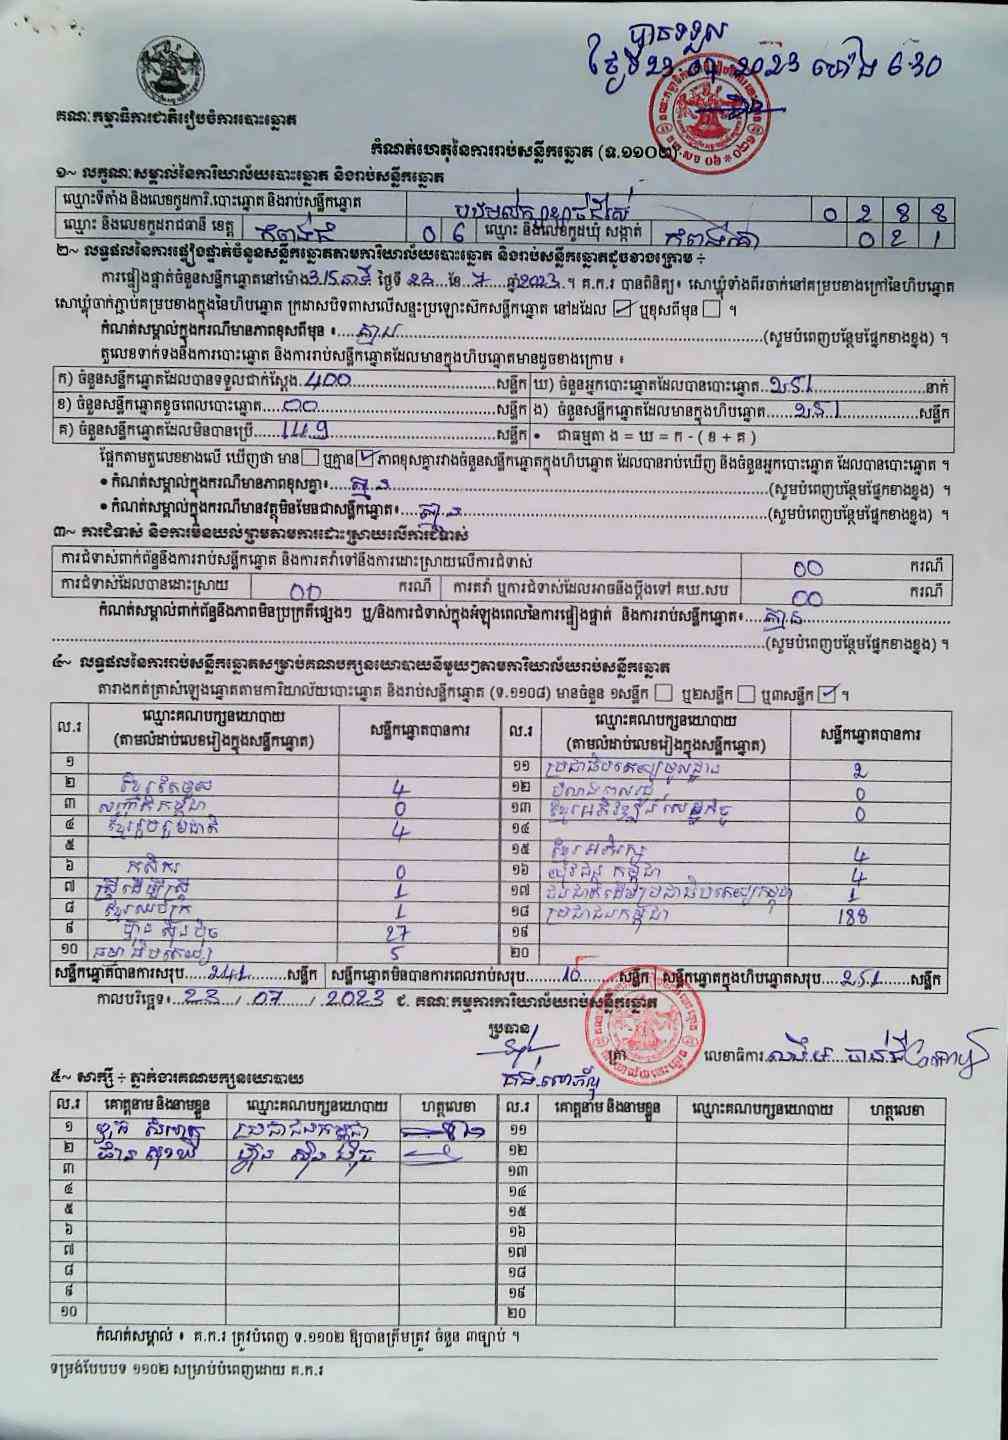 បានទទួល
ថ្ងៃទី 23.07.2023 ម៉ោង 6:30
គណៈកម្មាធិការជាតិរៀបចំការបោះឆ្នោត
កំណត់ហេតុនៃការរាប់សន្លឹកឆ្នោត (ទ.១១០២)
១~ លក្ខណៈសម្គាល់នៃការិយាល័យបោះឆ្នោត និងរាប់សន្លឹកឆ្នោត
ឈ្មោះទីតាំង និងលេខកូដការិ.បោះឆ្នោត និងរាប់សន្លឹកឆ្នោត 0 2 8 8
ឈ្មោះ និងលេខកូដរាជធានី ខេត្ត កំពង់ធំ 0 6 ឈ្មោះ និងលេខកូដឃុំ សង្កាត់ 0 2 1
២~ លទ្ធផលនៃការផ្ទៀងផ្ទាត់ចំនួនសន្លឹកឆ្នោតតាមការិយាល័យបោះឆ្នោត និងរាប់សន្លឹកឆ្នោតដូចខាងក្រោម ÷
ការផ្ទៀងផ្ទាត់ចំនួនសន្លឹកឆ្នោតនៅម៉ោង 3:15 នាទី ថ្ងៃទី 23 ខែ 7 ឆ្នាំ 2023 ។ គ.ក.រ បានពិនិត្យ៖ សោឃ្លុំទាំងពីរចាក់នៅគម្របខាងក្រៅនៃហិបឆ្នោត
សោឃ្លុំចាក់ភ្ជាប់គម្របខាងក្នុងនៃហិបឆ្នោត ក្រដាសបិទពាសលើសន្ទះប្រឡោះស៊កសន្លឹកឆ្នោត នៅដដែល ☑ ឬខុសពីមុន ☐ ។
កំណត់សម្គាល់ក្នុងករណីមានភាពខុសពីមុន ៖ គ្មាន (សូមបំពេញបន្ថែមផ្នែកខាងខ្នង) ។
តួលេខទាក់ទងនឹងការបោះឆ្នោត និងការរាប់សន្លឹកឆ្នោតដែលមានក្នុងហិបឆ្នោតមានដូចខាងក្រោម ៖
ក) ចំនួនសន្លឹកឆ្នោតដែលបានទទួលជាក់ស្ដែង 400 សន្លឹក ឃ) ចំនួនអ្នកបោះឆ្នោតដែលបានបោះឆ្នោត 251 នាក់
ខ) ចំនួនសន្លឹកឆ្នោតខូចពេលបោះឆ្នោត 00 សន្លឹក ង) ចំនួនសន្លឹកឆ្នោតដែលមានក្នុងហិបឆ្នោត 251 សន្លឹក
គ) ចំនួនសន្លឹកឆ្នោតដែលមិនបានប្រើ 149 សន្លឹក • ជាធម្មតា ង = ឃ = ក - ( ខ + គ )
ផ្អែកតាមតួលេខខាងលើ ឃើញថា មាន ☐ ឬគ្មាន ☑ ភាពខុសគ្នារវាងចំនួនសន្លឹកឆ្នោតក្នុងហិបឆ្នោត ដែលបានរាប់ឃើញ និងចំនួនអ្នកបោះឆ្នោត ដែលបានបោះឆ្នោត ។
• កំណត់សម្គាល់ក្នុងករណីមានភាពខុសគ្នា៖ គ្មាន (សូមបំពេញបន្ថែមផ្នែកខាងខ្នង) ។
• កំណត់សម្គាល់ក្នុងករណីមានវត្ថុមិនមែនជាសន្លឹកឆ្នោត៖ គ្មាន (សូមបំពេញបន្ថែមផ្នែកខាងខ្នង) ។
៣~ ការជំទាស់ និងការមិនយល់ព្រមតាមការដោះស្រាយលើការជំទាស់
ការជំទាស់ពាក់ព័ន្ធនឹងការរាប់សន្លឹកឆ្នោត និងការតវ៉ាទៅនឹងការដោះស្រាយលើការជំទាស់ 00 ករណី
ការជំទាស់ដែលបានដោះស្រាយ 00 ករណី ការតវ៉ា ឬការជំទាស់ដែលអាចនឹងប្ដឹងទៅ គឃ.សប 00 ករណី
កំណត់សម្គាល់ពាក់ព័ន្ធនឹងភាពមិនប្រក្រតីផ្សេងៗ ឬ/និងការជំទាស់ក្នុងអំឡុងពេលនៃការផ្ទៀងផ្ទាត់ និងការរាប់សន្លឹកឆ្នោត៖ គ្មាន
(សូមបំពេញបន្ថែមផ្នែកខាងខ្នង) ។
៤~ លទ្ធផលនៃការរាប់សន្លឹកឆ្នោតសម្រាប់គណបក្សនយោបាយនីមួយៗតាមការិយាល័យរាប់សន្លឹកឆ្នោត
តារាងកត់ត្រាសំឡេងឆ្នោតតាមការិយាល័យបោះឆ្នោត និងរាប់សន្លឹកឆ្នោត (ទ.១១០៨) មានចំនួន ១សន្លឹក ☐ ឬ២សន្លឹក ☐ ឬ៣សន្លឹក ☑ ។
ល.រ ឈ្មោះគណបក្សនយោបាយ (តាមលំដាប់លេខរៀងក្នុងសន្លឹកឆ្នោត) សន្លឹកឆ្នោតបានការ ល.រ ឈ្មោះគណបក្សនយោបាយ (តាមលំដាប់លេខរៀងក្នុងសន្លឹកឆ្នោត) សន្លឹកឆ្នោតបានការ
១ ១១ ប្រជាធិបតេយ្យមូលដ្ឋាន 2
២ ខ្មែរតែមួយ 4 ១២ 0
៣ សញ្ជាតិកម្ពុជា 0 ១៣ ខ្មែរអភិវឌ្ឍន៍សេដ្ឋកិច្ច 0
៤ ខ្មែររួបរួមជាតិ 4 ១៤
៥ ១៥ ខ្មែរអភិរក្ស 4
៦ កសិករ 0 ១៦ យុវជនកម្ពុជា 4
៧ ស្ត្រីដើម្បីស្ត្រី 1 ១៧ ជនជាតិដើមប្រជាធិបតេយ្យកម្ពុជា 1
៨ ខ្មែរឈប់ក្រ 1 ១៨ ប្រជាជនកម្ពុជា 188
៩ ហ៊្វុនស៊ិនប៉ិច 27 ១៩
១០ ធម្មាធិបតេយ្យ 5 ២០
សន្លឹកឆ្នោតបានការសរុប 241 សន្លឹក សន្លឹកឆ្នោតមិនបានការពេលរាប់សរុប 10 សន្លឹក សន្លឹកឆ្នោតក្នុងហិបឆ្នោតសរុប 251 សន្លឹក
កាលបរិច្ឆេទ៖ 23 / 07 / 2023 ជ. គណៈកម្មការការិយាល័យរាប់សន្លឹកឆ្នោត
ប្រធាន
ត្រា លេខាធិការ
៥~ សាក្សី ÷ ភ្នាក់ងារគណបក្សនយោបាយ
ល.រ គោត្តនាម និងនាមខ្លួន ឈ្មោះគណបក្សនយោបាយ ហត្ថលេខា ល.រ គោត្តនាម និងនាមខ្លួន ឈ្មោះគណបក្សនយោបាយ ហត្ថលេខា
១ ប្រជាជនកម្ពុជា ១១
២ ហ៊្វុន ស៊ិន ប៉ិច ១២
៣ ១៣
៤ ១៤
៥ ១៥
៦ ១៦
៧ ១៧
៨ ១៨
៩ ១៩
១០ ២០
កំណត់សម្គាល់ ៖ គ.ក.រ ត្រូវបំពេញ ទ.១១០២ ឱ្យបានត្រឹមត្រូវ ចំនួន ៣ច្បាប់ ។
ទម្រង់បែបបទ ១១០២ សម្រាប់បំពេញដោយ គ.ក.រ